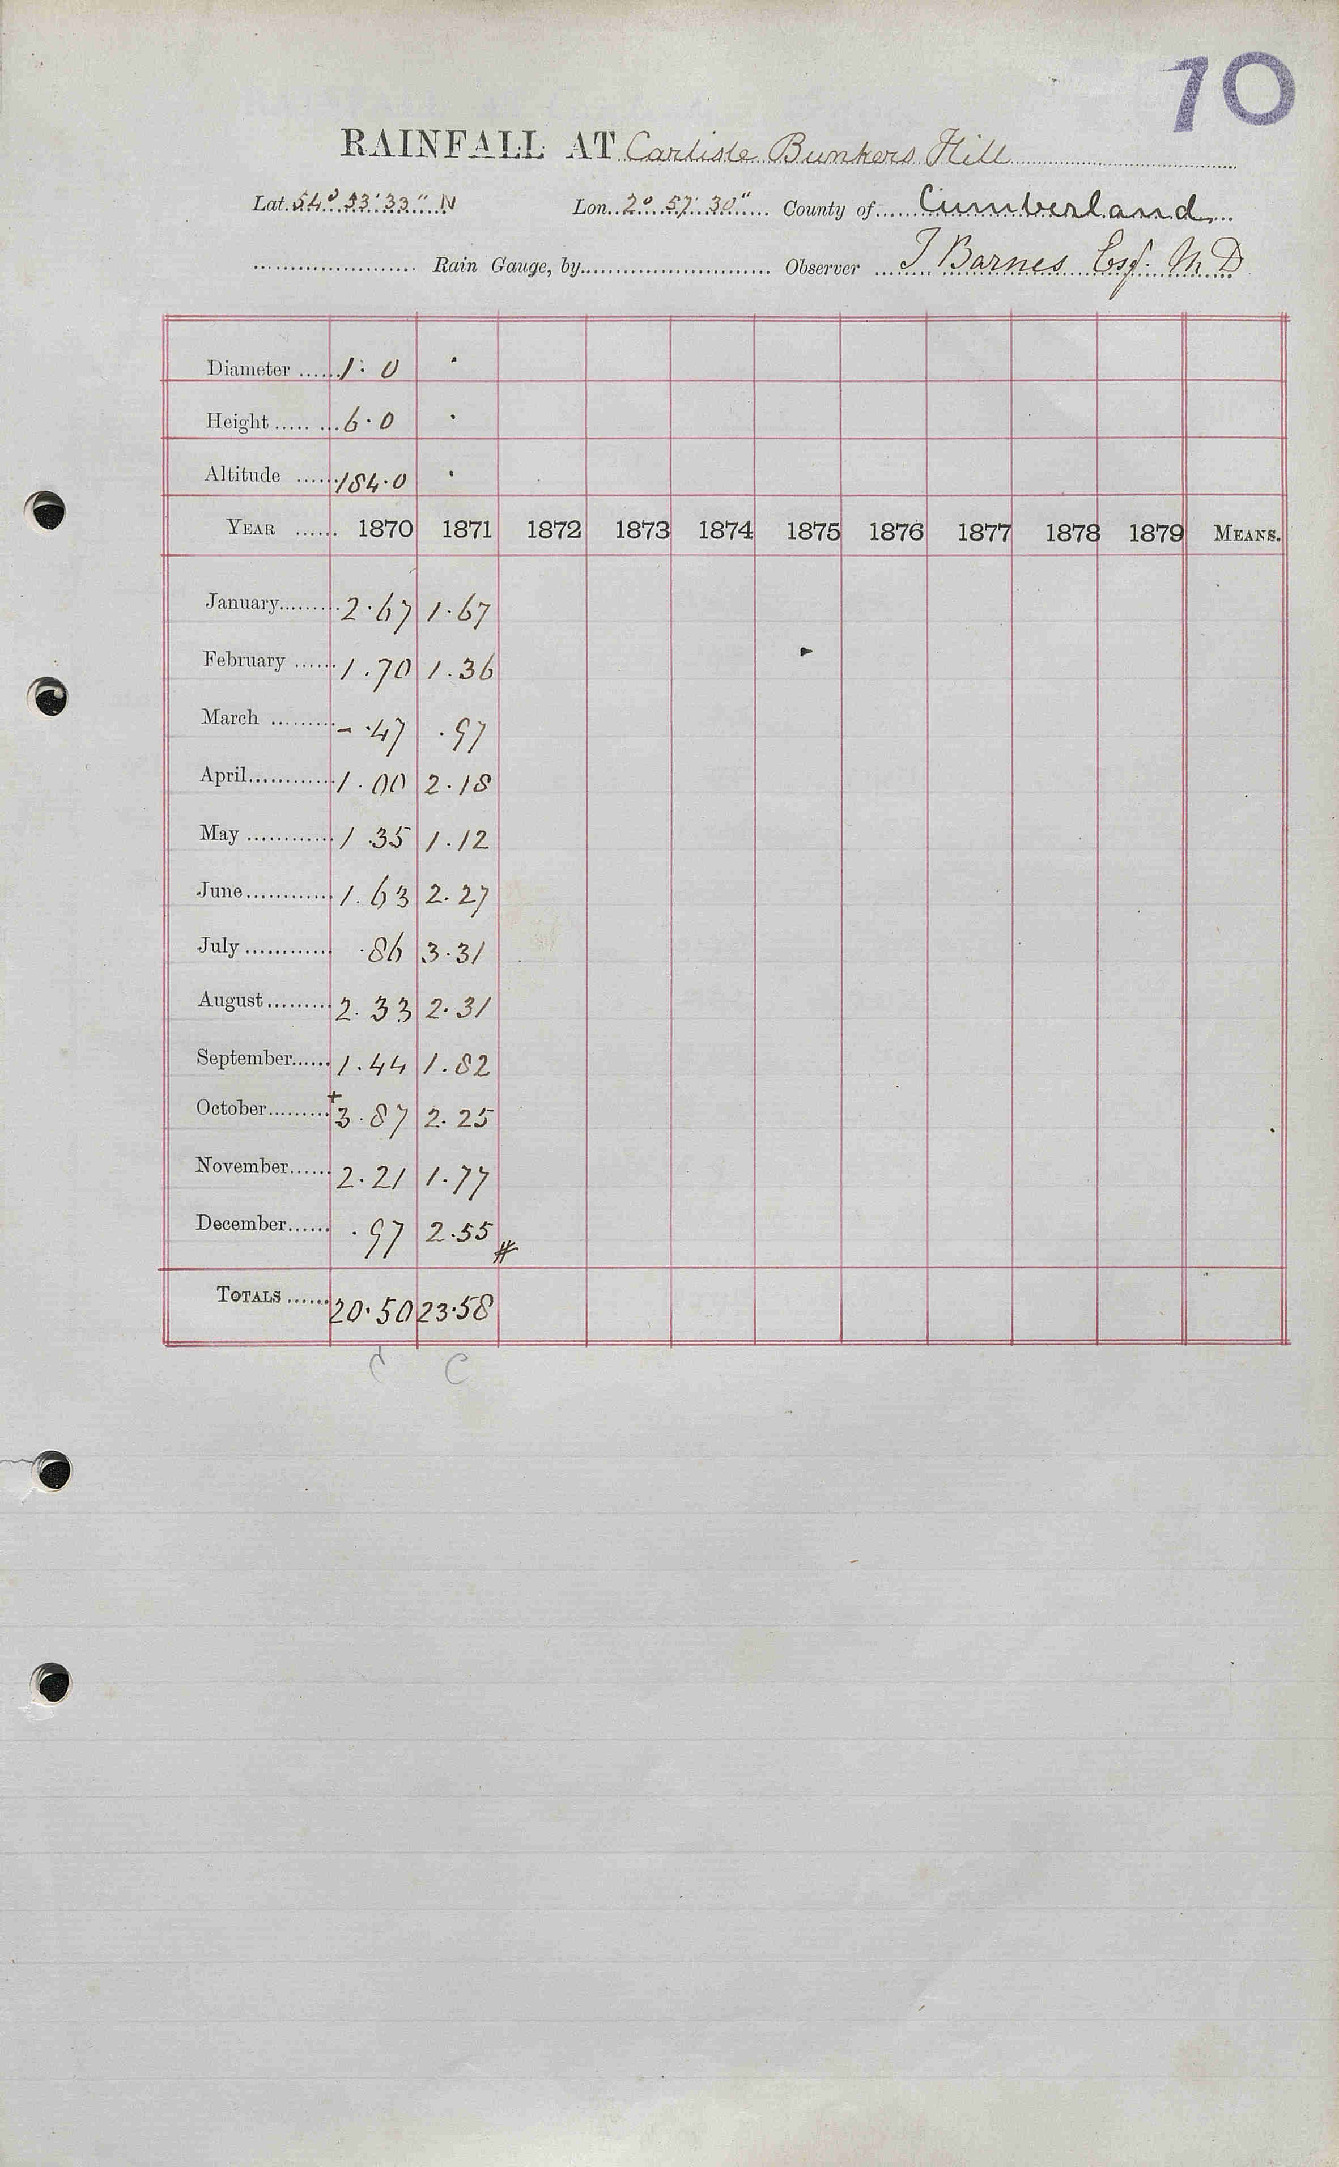 10
RAINFALL AT Carlisle Bunkers Hill
Lat. 54° 53' 33" N Lon. 2° 57' 30" County of Cumberland
Rain Gauge, by Observer T Barnes Esq. M D
Diameter 1 . 0 .
Height 6 . 0 .
Altitude 184.0 .
YEAR 1870 1871 1872 1873 1874 1875 1876 1877 1878 1879 MEANS.
January 2.67 1.67
February 1.70 1.36
March - .47 .97
April 1.00 2.18
May 1.35 1.12
June 1.63 2.27
July .86 3.31
August 2.33 2.31
September 1.44 1.82
October + 3.87 2.25
November 2.21 1.77
December .97 2.55 #
TOTALS 20.50 23.58
C C